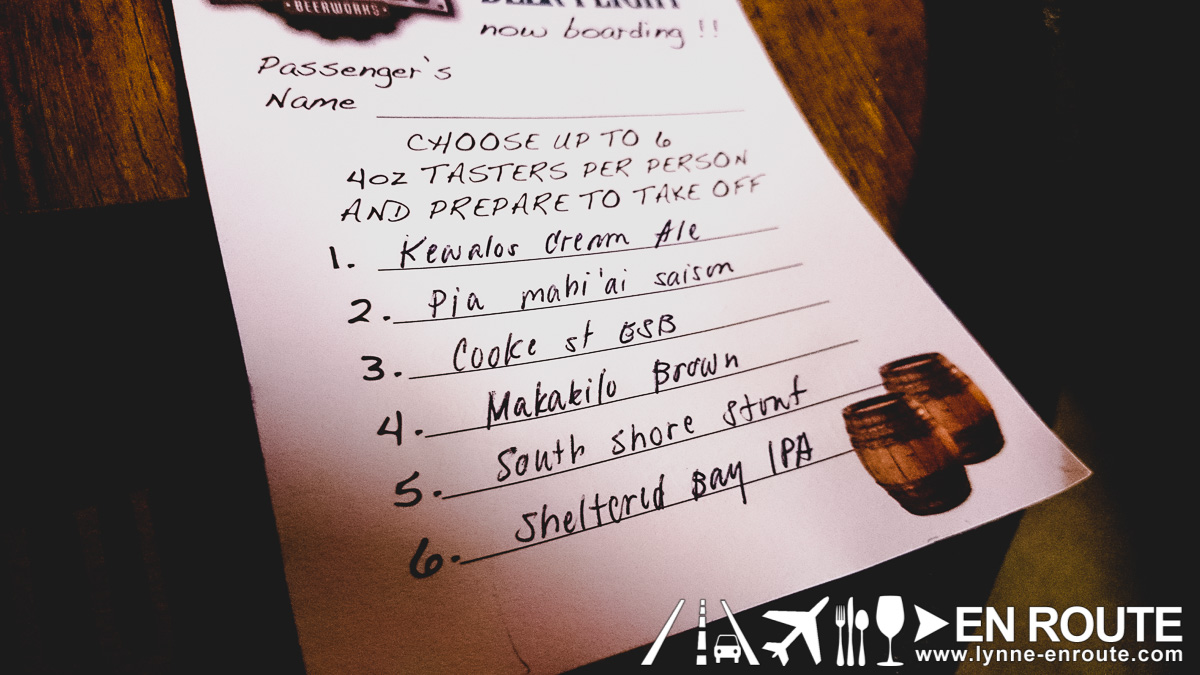 BEERWORKS
BEER FLIGHT
now boarding !!
Passenger's
Name
CHOOSE UP TO 6
4oz TASTERS PER PERSON
AND PREPARE TO TAKE OFF
1. Kewalos Cream Ale
2. Pia mahi'ai saison
3. Cooke st ESB
4. Makakilo Brown
5. South shore stout
6. Sheltered Bay IPA
EN ROUTE
www.lynne-enroute.com